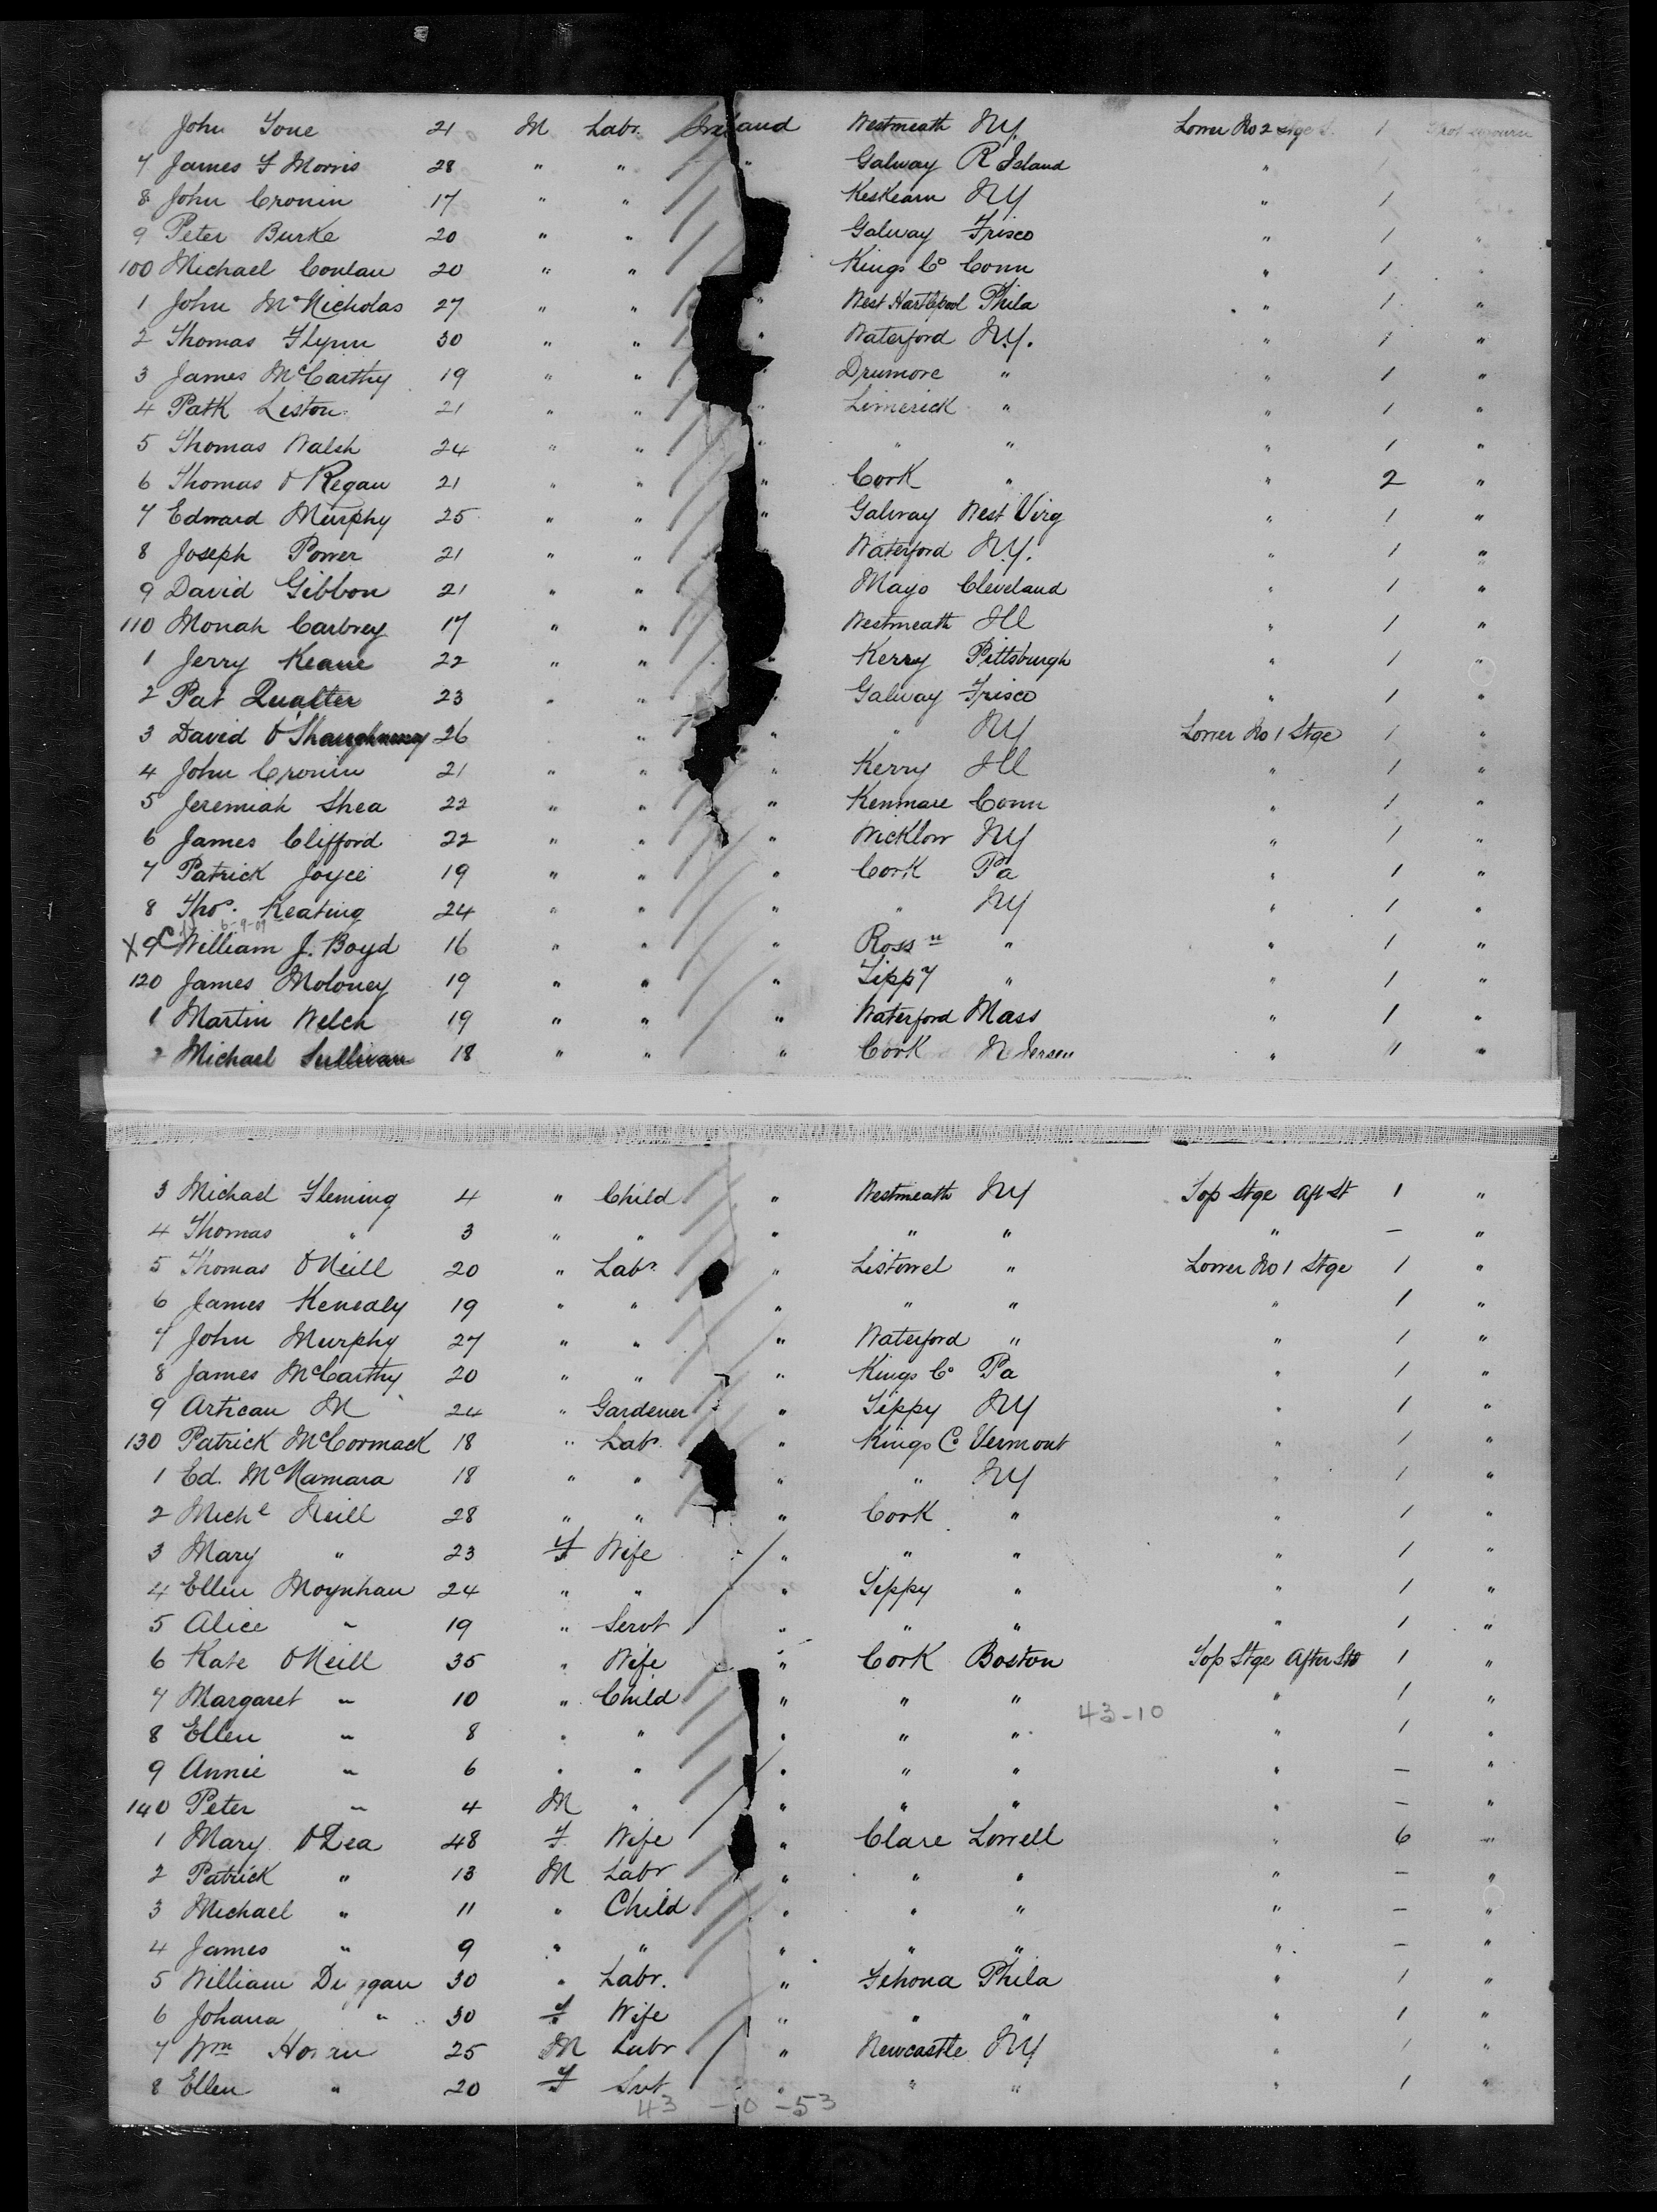 John Tone 21 M Labr. Ireland Westmeath NY. Lower No 2 Stge 1
7 James F Morris 28 " " " Galway R Island "
8 John Cronin 17 " " Keskearn NY " 1
9 Peter Burke 20 " " Galway Frisco " 1 "
100 Michael Conlan 20 " " Kings Co Conn " 1 "
1 John McNicholas 27 " " " West Hartlepool Phila " 1 "
2 Thomas Flynn 30 " " " Waterford N.Y. " 1 "
3 James McCarthy 19 " " " Drumore " " 1 "
4 Patk Liston 21 " " " Limerick " " 1 "
5 Thomas Walsh 24 " " " " " " 1 "
6 Thomas O Regan 21 " " " Cork " " 2 "
7 Edward Murphy 25 " " " Galway West Virg " 1 "
8 Joseph Power 21 " " Waterford N.Y. " 1 "
9 David Gibbon 21 " " Mayo Cleveland " 1 "
110 Monah Carbrey 17 " " Westmeath Ill " 1 "
1 Jerry Keane 22 " " " Kerry Pittsburgh " 1 "
2 Pat Qualter 23 " " Galway Frisco " 1 "
3 David O'Shaughnessy 26 " " " NY Lower No 1 Stge 1 "
4 John Cronin 21 " " " Kerry Ill " 1 "
5 Jeremiah Shea 22 " " " Kenmare Conn " 1 "
6 James Clifford 22 " " " Wicklow NY " 1 "
7 Patrick Joyce 19 " " " Cork Pa " 1 "
8 Thos. Keating 24 " " " " NY " 1 "
6-9-09
X 9 C William J. Boyd 16 " " " Ross n " " 1 "
120 James Moloney 19 " " " Tippy " " 1 "
1 Martin Welch 19 " " " Waterford Mass " 1 "
2 Michael Sullivan 18 " " " Cork N Jersey " 1 "
3 Michael Fleming 4 " Child " Westmeath NY Top Stge Aft St 1 "
4 Thomas " 3 " " " " " " — "
5 Thomas O Neill 20 " Labr " Listowel " Lower No 1 Stge 1 "
6 James Kenealy 19 " " " " " " 1 "
7 John Murphy 27 " " " Waterford " " 1 "
8 James McCarthy 20 " " " Kings Co Pa " 1 "
9 Artican M 24 " Gardener " Tippy NY " 1 "
130 Patrick McCormack 18 " Labr. " Kings Co Vermont " 1 "
1 Ed. McNamara 18 " " " " NY " 1 "
2 Michl Neill 28 " " " Cork " " 1 "
3 Mary " 23 F Wife " " " " 1 "
4 Ellen Moynhan 24 " " " Tippy " " 1 "
5 Alice " 19 " Servt " " " " 1 "
6 Kate O Neill 35 " Wife " Cork Boston Top Stge After Stb 1 "
7 Margaret " 10 " Child " " " " 1 "
43-10
8 Ellen " 8 " " " " " " 1 "
9 Annie " 6 " " " " " " — "
140 Peter " 4 M " " " " " — "
1 Mary O Dea 48 F Wife " Clare Lowell " 6 "
2 Patrick " 13 M Labr " " " " — "
3 Michael " 11 " Child " " " " — "
4 James " 9 " " " " " " — "
5 William Duggan 30 " Labr. " Phila " 1 "
6 Johana " 30 F Wife " " " " 1 "
7 Wm 25 M Labr " Newcastle NY " 1 "
8 Ellen " 20 F Svt " " " " 1 "
43 - 0 - 53